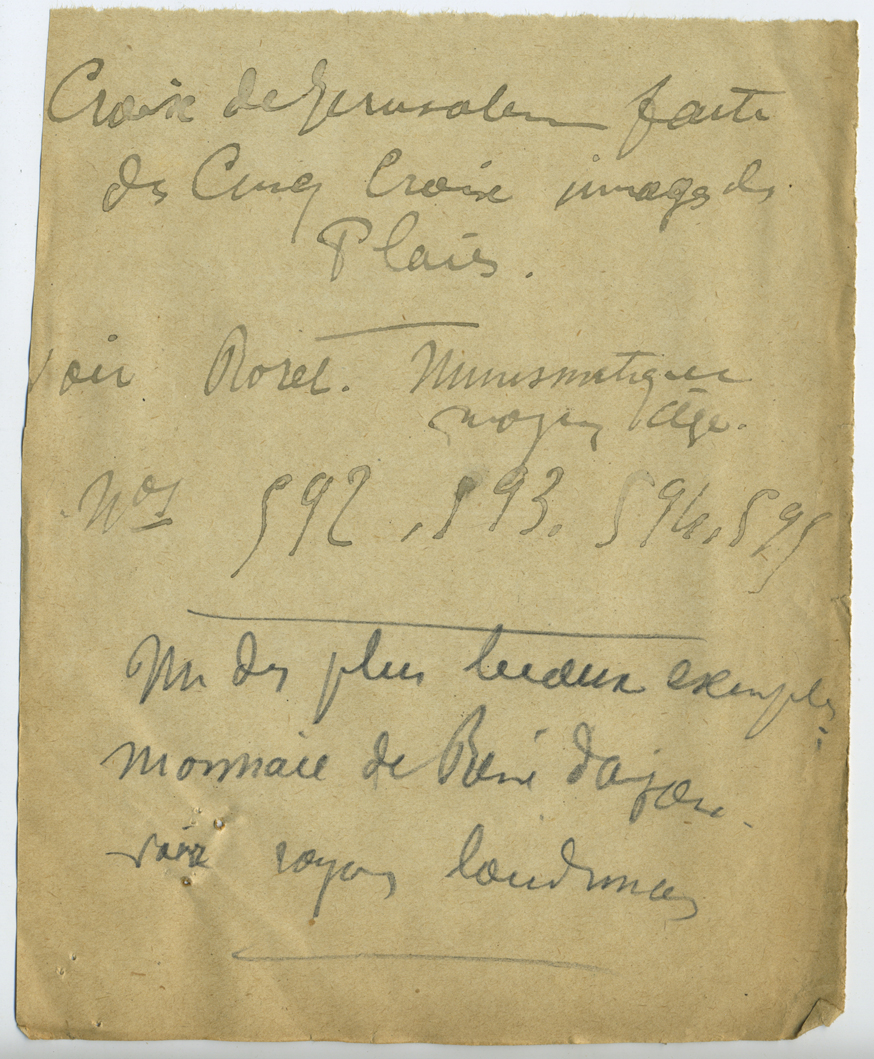 Croix de Jerusalem faite
des Cinq Croix image des
Plaies.
voir Roret. Numismatique
moyen Age.
Nos 592, 593, 594, 595
Un des plus beaux exemples
monnaie de René d'anjou.
voir